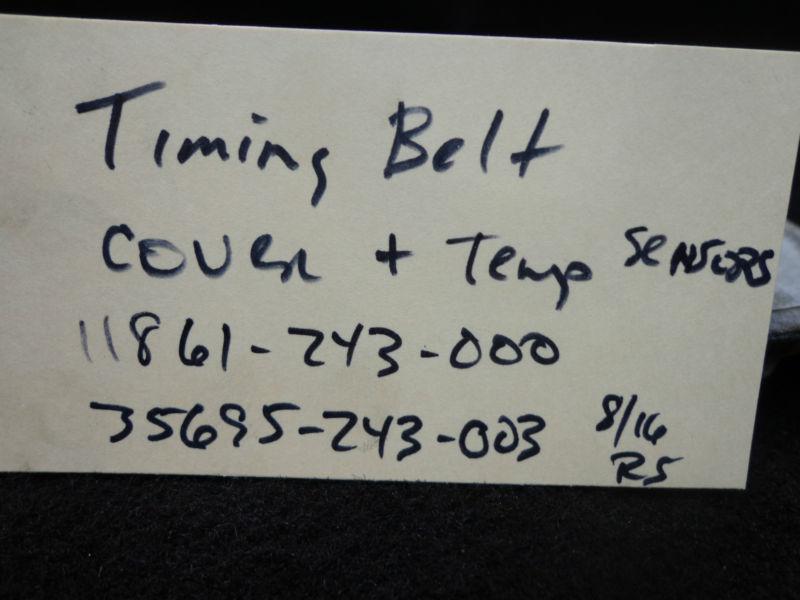 Timing Belt
COVER + Temp SENSORS
11861-243-000
35695-243-003 8/16
RS